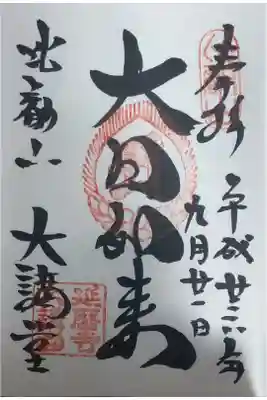 奉拝
平成廿六年
九月廿一日
大日如来
比叡山
大講堂
延暦寺